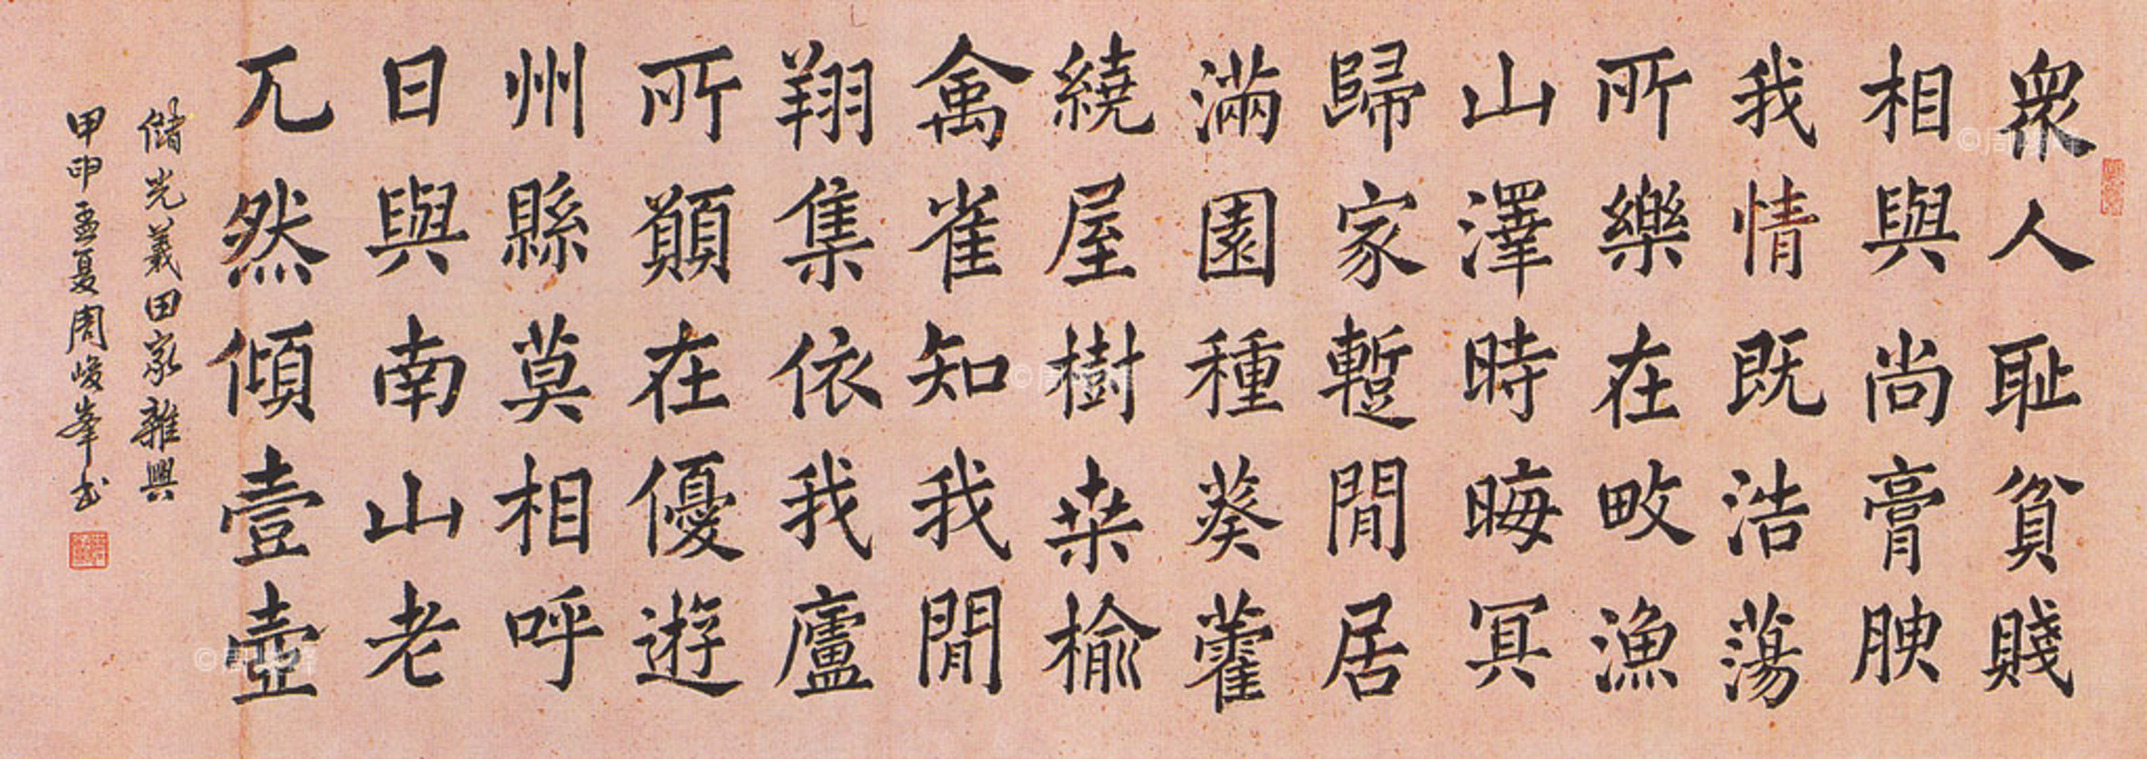 衆人恥貧賤
相與尚膏腴
我情既浩蕩
所樂在畋漁
山澤時晦冥
歸家暫閒居
滿園種葵藿
繞屋樹桒榆
禽雀知我閒
翔集依我廬
所願在優遊
州縣莫相呼
日與南山老
兀然傾壹壺
儲光羲田家雜興
甲申孟夏周峻峯书